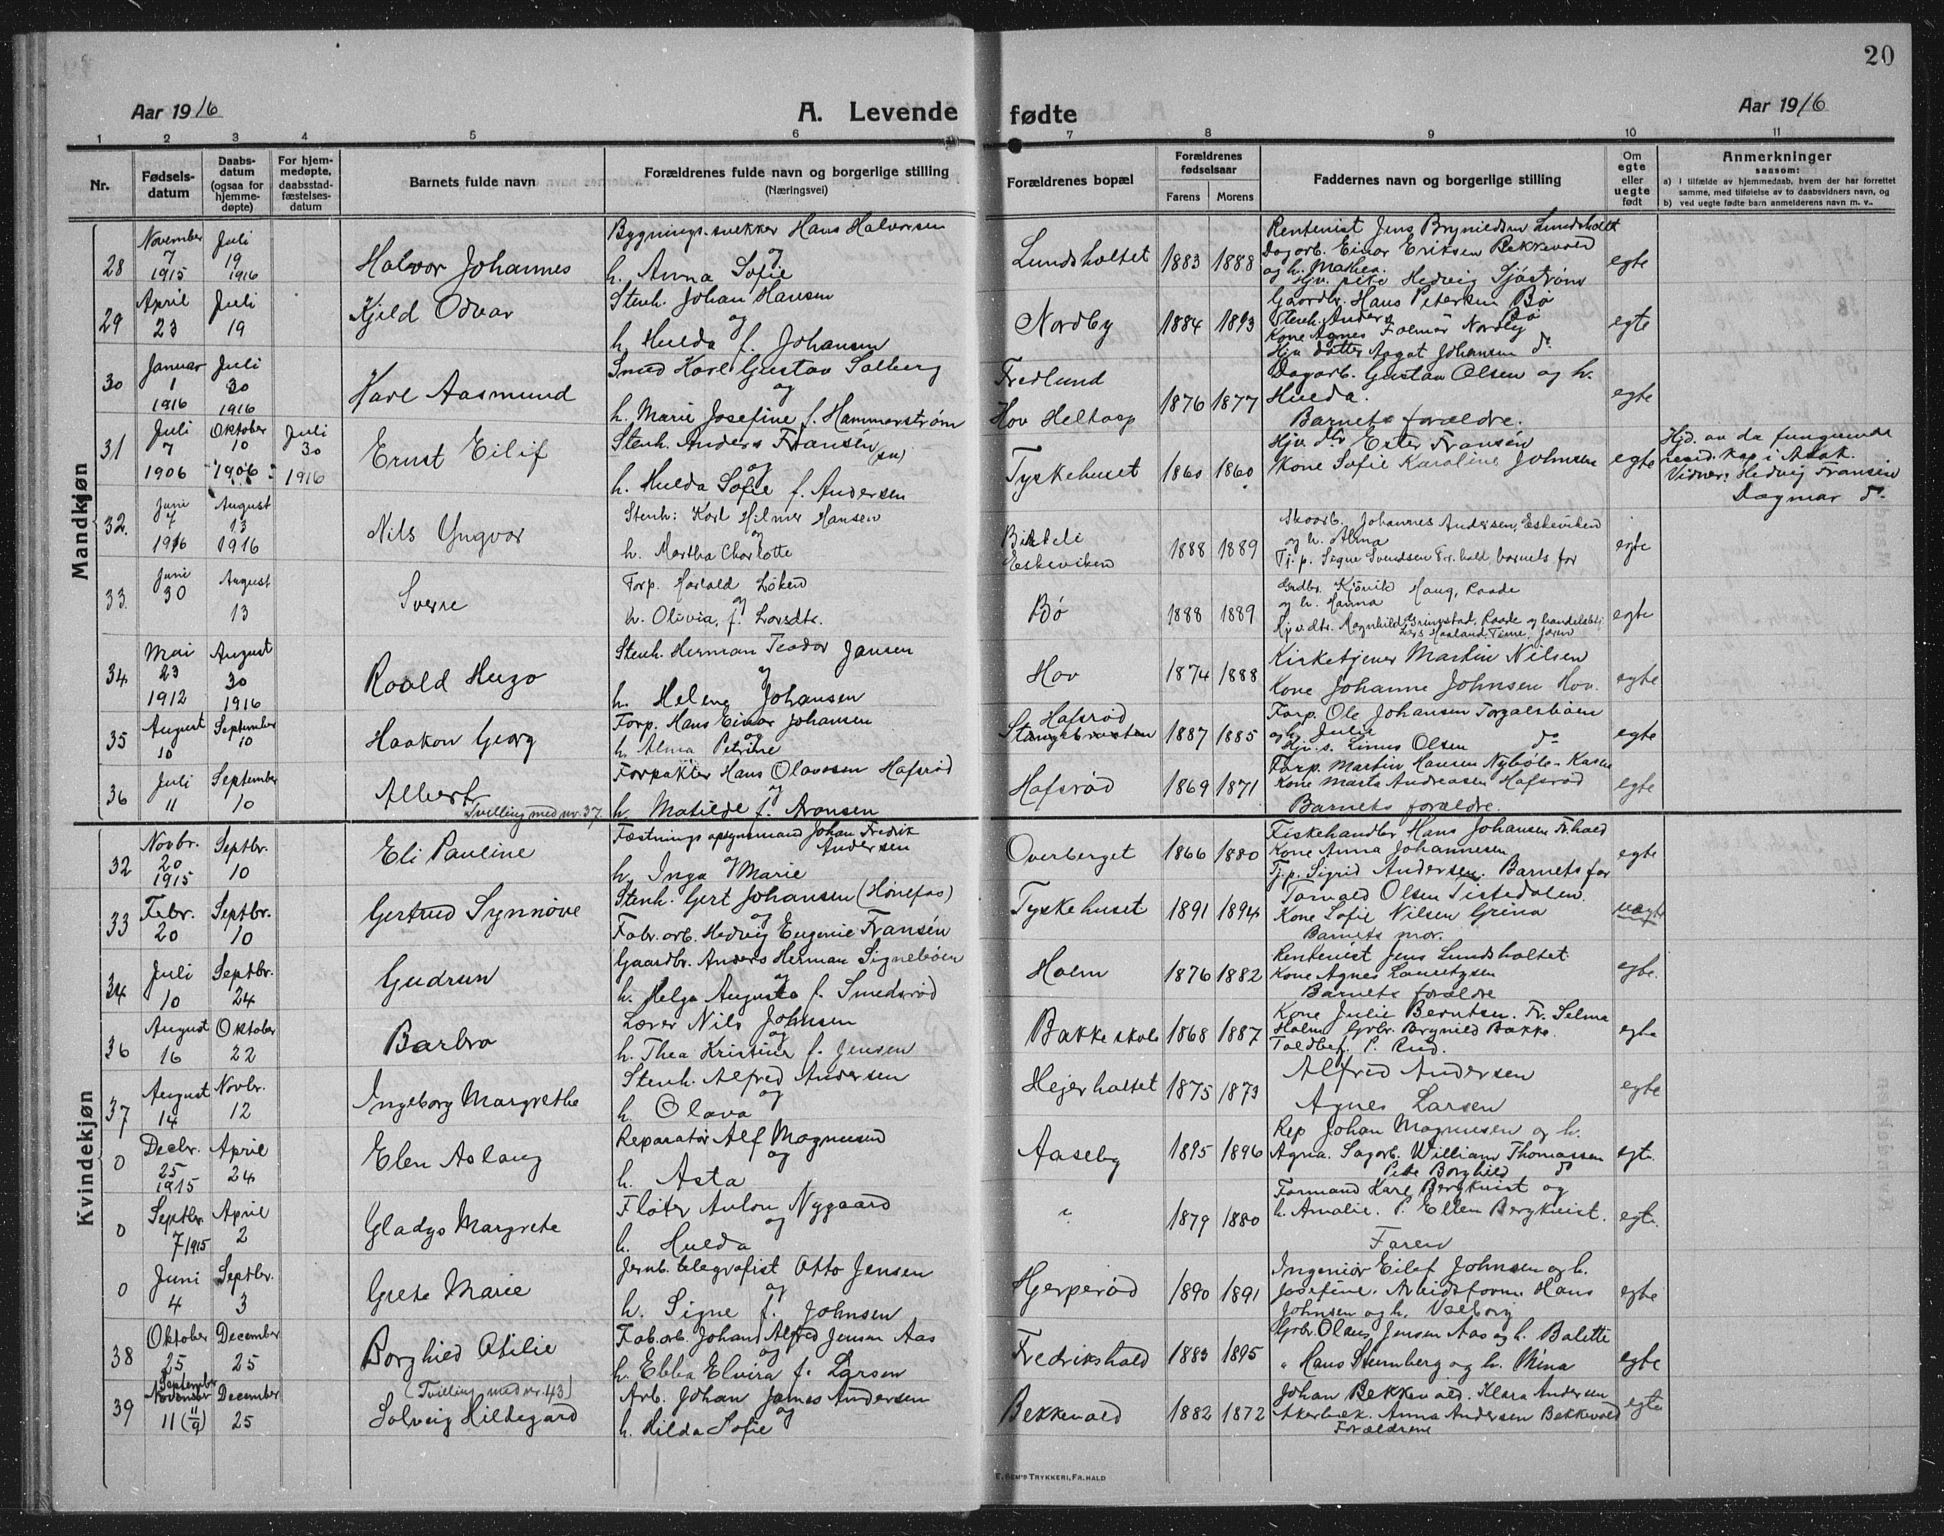 20
Aar 1916 A. Levende fødte Aar 1916
1 2 3 4 5 6 7 8 9 10 11
Nr. | Fødselsdatum | Daabsdatum (ogsaa for hjemmedøpte) | For hjemmedøpte, daabsstadfæstelsesdatum | Barnets fulde navn | Forældrenes fulde navn og borgerlige stilling (Næringsvei) | Forældrenes bopæl | Forældrenes fødselsaar Farens Morens | Faddernes navn og borgerlige stilling | Om egte eller uegte født | Anmerkninger saasom: a) I tilfælde av hjemmedaab, hvem der har forrettet samme, med tilføielse av to daabsvidners navn, og b) ved uegte fødte barn anmelderens navn m. v..
Mandkjøn
28 November 7 1915 Juli 19 1916 Halvor Johannes Bygnings.snekker Hans Halvorsen og h. Anna Sofie Lundsholtet 1883 1888 Rentenist Jens Brynildsen Lundsholtet Dagarb. Einar Eriksen Bekkevold og h. Mathea. Hjv. pike Hedvig Sjøstrøm egte
29 April 23 Juli 19 Kjeld Odvar Stenh. Johan Hansen og h. Hulda f. Johansen Nordby 1884 1893 Gaardbr. Hans Petersen Bø Stenh. Anders Bø Kone Agnes Folmar Nordby Hjv datter Aagot Johansen do egte
30 Januar 1 1916 Juli 30 1916 Karl Aasmund Smed Karl Gustav Solberg og h. Marie Josefine f. Hammerstrøm Fredlund Hov Heltorp 1876 1877 Dagarb. Gustav Olsen og h. Hulda. Barnets forældre. egte
31 Juli 7 1906 Oktober 10 1906 Juli 30 1916 Ernst Eilif Stenh. Anders Fransén (sv) og h. Hulda Sofie f. Andersen Tyskehuset 1860 1860 Hjv. dtr Ester Fransén Kone Sofie Karoline Johnsen egte Hjd. av da fungerende resid. kap i Asak. Vidner: Hedvig Fransén Dagmar do
32. Juni 7 1916 August 13 1916 Nils Yngvar Stenh: Karl Hilmer Hansen og h. Martha Charlotte Eskeviken 1888 1889 Skoarb. Johannes Andersen, Eskeviken og h. Alma Tj. p. Signe Svendsen Fr.hald, barnets far egte
33. Juni 30 August 13 Sverre Forp. Harald Løken og h. Olivia, f. Larsdtr. Bø 1888 1889 Grdbr. Kjønik Haug, Raade og h. Hanna Hjv. dtr. Magnhild Grimstad, Raade og handelsbtj. Lars Haaland, Time, Jæren egte
34 Mai 23 1912 August 30 1916 Roald Hugo Stenh. Herman Teodor Jansen og h. Helene Johansen Hov 1874 1888 Kirketjener Martin Nilsen Kone Johanne Johnsen Hov. egte
35 August 10 September 10 Haakon Georg Forp. Hans Einar Johansen og h. Alma Petrine Hafsrød Stangebraaten 1887 1885 Forp. Ole Johansen Torgalsbøen og h. Julie Hjv. s. Linus Olsen do egte
36 Juli 11 September 10 Albert Tvilling med nr. 37 Forpakter Hans Olavesen Hafsrød og h. Matilde f. Aronsen Hafsrød 1869 1871 Forp. Martin Hansen Nybøle-Kasen Kone Marta Andreasen Hafsrød Barnets forældre. egte
Kvindekjøn
32 Novbr. 20 1915 Septbr. 10 Eli Pauline Fæstnings opsynsmand Johan Fredrik Andersen og h. Inga Marie Overberget 1866 1880 Fiskehandler Hans Johansen Fr.hald Kone Anna Johannesen Tj. p. Sigrid Andersen. Barnets far egte
33 Febr. 20 Septbr. 10 Gertrud Synnøve Stenh. Gert Johansen (Hønefos) og Fabr. arb. Hedvig Eugenie Fransén Tyskehuset 1891 1894 Tomald Olsen Tistedalen. Kone Sofie Nilsen Grena Barnets mor. uegte
34 Juli 10 Septbr. 24 Gudrun Gaardbr. Anders Herman Signebøen og h. Helga Augusta f. Smedsrød Holm 1876 1882 Rentenist Jens Lundsholtet Kone Agnes Lauretzsen Barnets forældre egte.
36 August 16 Oktober 22 Barbro Lærer Nils Johnsen og h. Thea Kristine f. Jensen Bakke skole 1868 1887 Kone Julie Berntsen. Fr. Selma Holm Grbr. Brynild Bakke. Toldbetj. P. Rud. egte
37 August 14 Novbr. 12 Ingeborg Margrethe Stenh. Alfred Andersen og h. Olava Hejerholtet 1875 1873 Alfred Andersen Agnes Larsen egte
0 Decbr. 25 1915 April 24 Elen Aslaug Reparatør Alf Magnusen og h. Asta Aaseby 1895 1896 Rep Johan Magnusen og h. Agna. Sagarb. William Thomassen Pike Borghild do egte.
0 Septbr. 7 1915 April 2 Gladys Margrete Fløter Anton Nygaard og h. Hulda " 1879 1880 Formand Karl Bergkvist og h. Amalie. P. Ellen Bergkvist. Faren egte.
0 Juni 4 Septbr. 3 Grete Marie Jernb. telegrafist Otto Jensen og h. Signe f. Johnsen Hjerperød 1890 1891 Ingeniør Eilef Johnsen og h. Josefine. Arbeidsform. Hans Johnsen og h. Valborg egte
38 Oktober 25 December 25 Borghild Otilie Fab. arb. Johan Alfred Jensen Aas og h. Ebba Elvira f. Larsen Fredrikshald 1883 1895 Grbr. Olaus Jensen Aas og h. Balette " Hans Stumberg og h. Mina egte
39 September November 11 (11/9) December 25 (Tvilling med nr. 43) Solveig Hildegard Arb. Johan James Andersen og h. Hilda Sofie Bekkevold 1882 1872 Johan Bekkevold. Klara Andersen Akerbæk. Anna Andersen Bekkevold Forældrene egte
E. Sem's Trykkeri, Fr.hald